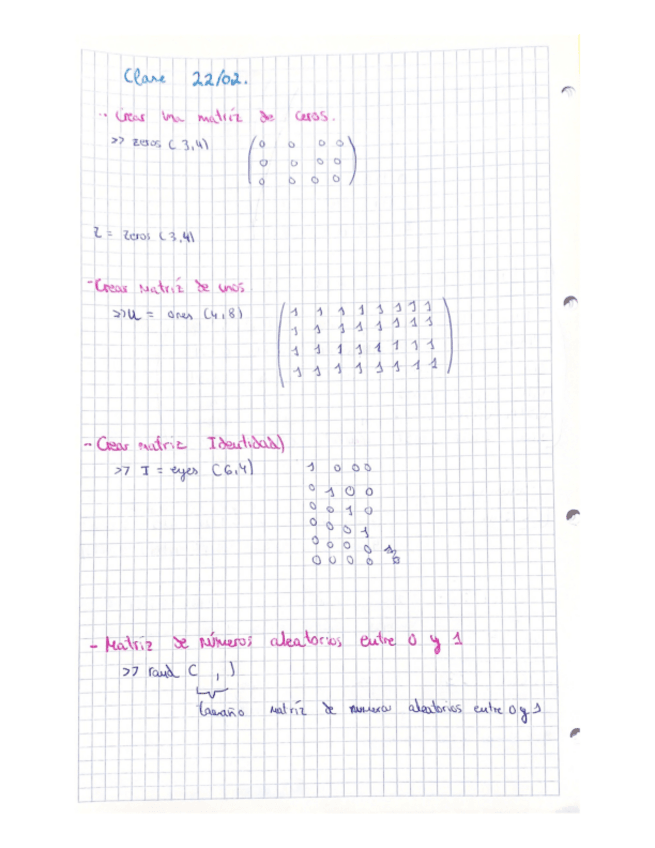 Clase 22/02.
- Crear una matriz de ceros.
>> zeros (3,4) (0 0 0 0
0 0 0 0
0 0 0 0)
Z = zeros (3,4)
- Crear matriz de unos
>> U = ones (4,8) (1 1 1 1 1 1 1 1
1 1 1 1 1 1 1 1
1 1 1 1 1 1 1 1
1 1 1 1 1 1 1 1)
- Crear matriz Identidad)
>> I = eyes (6,4) 1 0 0 0
0 1 0 0
0 0 1 0
0 0 0 1
0 0 0 0
0 0 0 0
- Matriz de números aleatorios entre 0 y 1
>> rand ( , )
tamaño matriz de numeros aleatorios entre 0 y 1